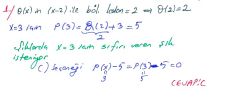 1-) Q(x) in (x-2) ile böl kalan = 2 ⇒ Q(2) = 2
x=3 için P(3) = Q(2) + 3 = 5
2
Şıklarda x=3 için sıfırı veren şık
isteniyor.
C) Seçeneği P(x) - 5 = P(3) - 5 = 0
3 5
CEVAP: C